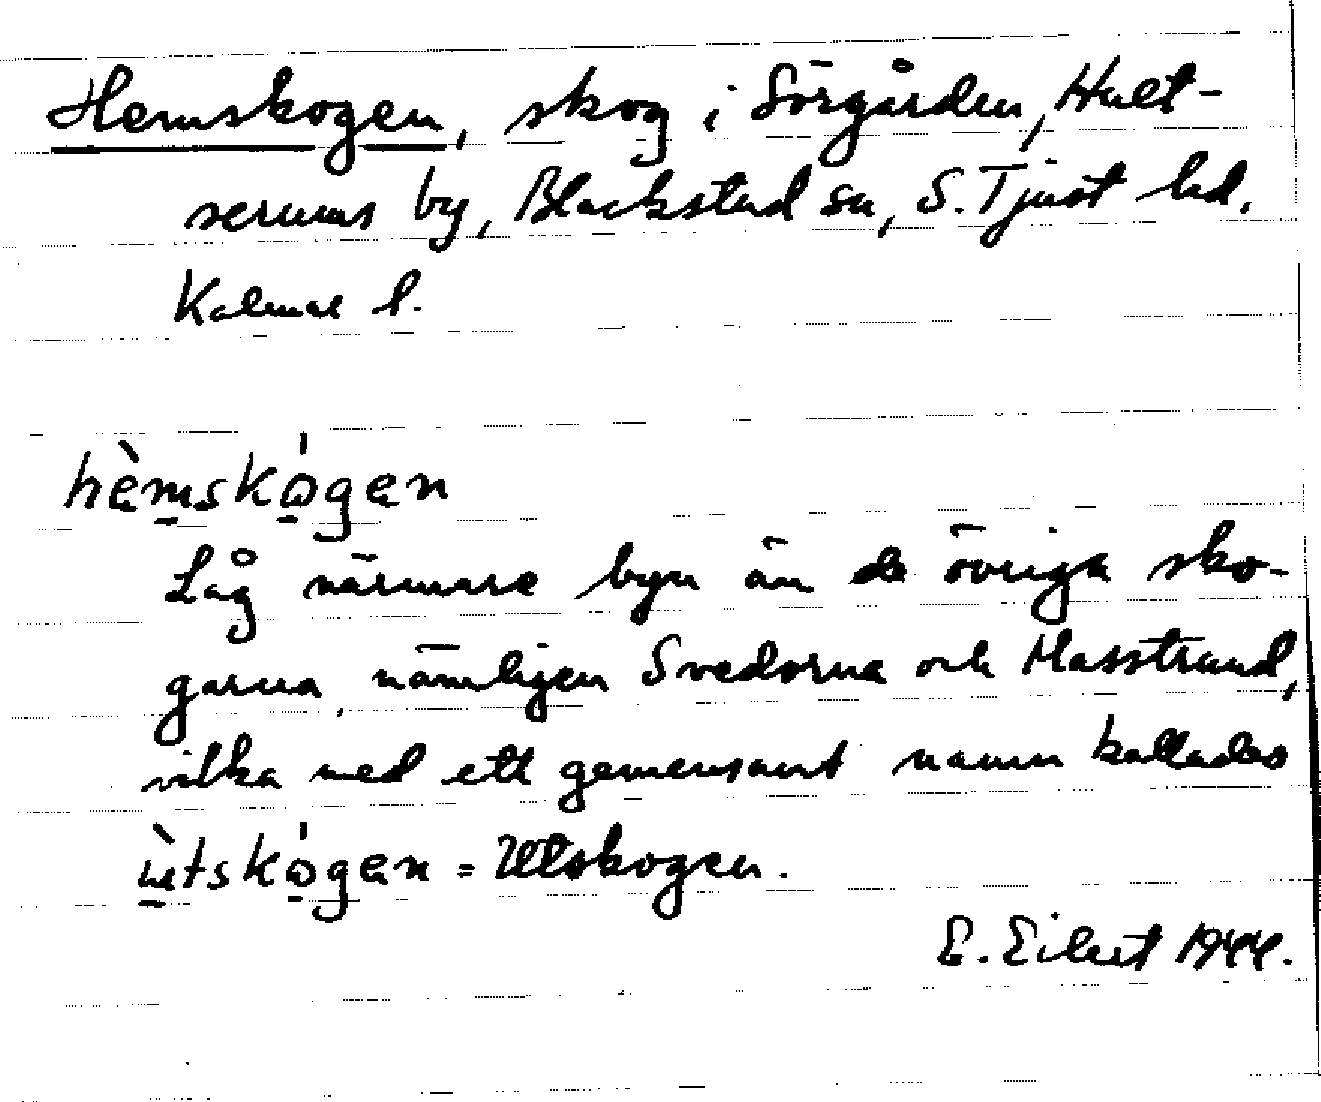 Hemskogen, skog i Sörgården, Hult-
serums by, Blackstad sn, S. Tjust hd.
Kalmar l.
hèmskógen
Låg närmare byn än de övriga sko-
garna, nämligen Svedorna och Masstrand,
vilka med ett gemensamt namn kallades
ùtskógen = Utskogen.
E. Eilert 1944.